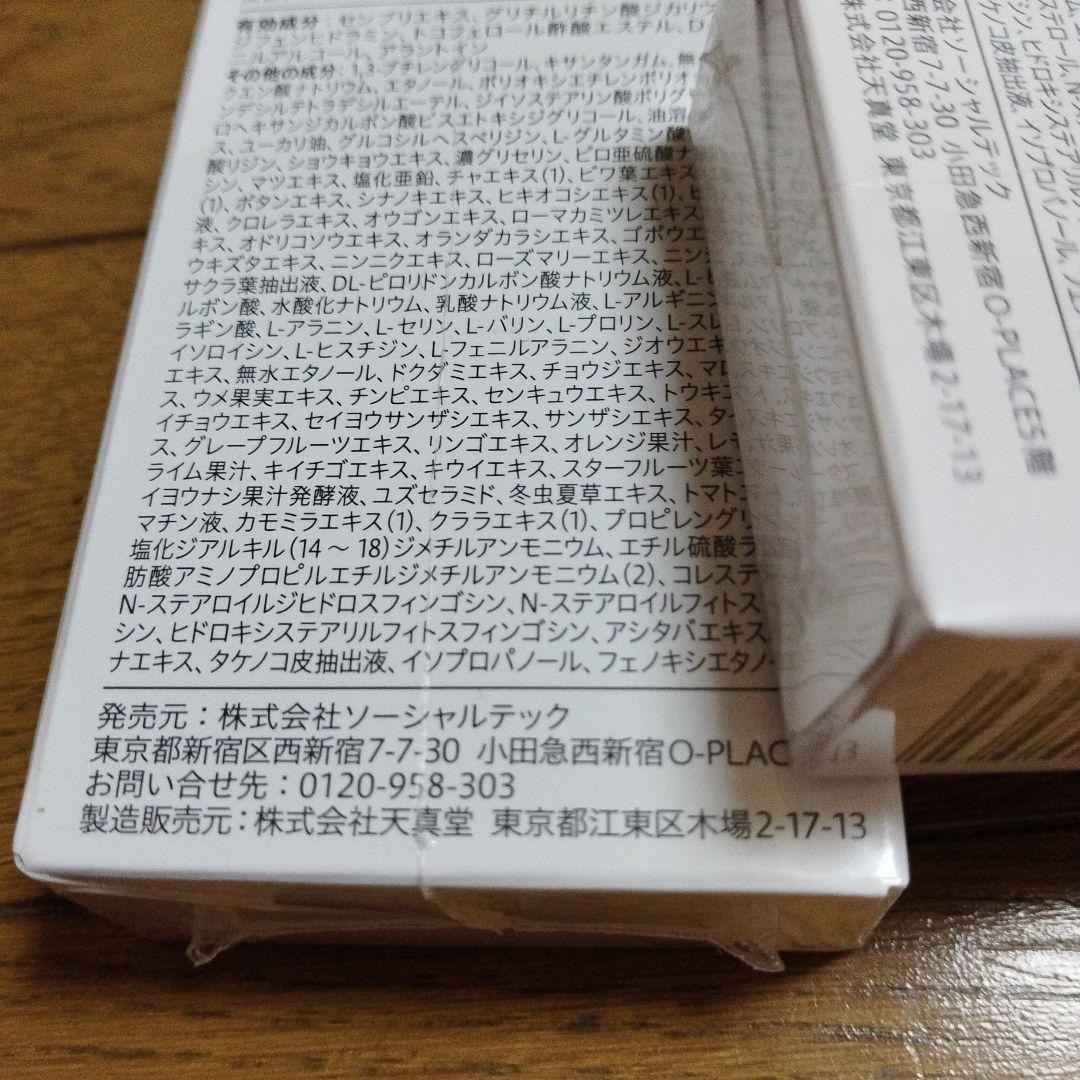 有効成分：センブリエキス、グリチルリチン酸ジカリウ
ジフェンヒドラミン、トコフェロール酢酸エステル、D
ニルアルコール、アラントイン
その他の成分：1,3-ブチレングリコール、キサンタンガム、無
クエン酸ナトリウム、エタノール、ポリオキシエチレンポリオ
ンデシルテトラデシルエーテル、ジイソステアリン酸ポリグ
ロヘキサンジカルボン酸ビスエトキシジグリコール、油溶
ス、ユーカリ油、グルコシルヘスペリジン、L-グルタミン酸
酸リジン、ショウキョウエキス、濃グリセリン、ピロ亜硫酸ナ
シン、マツエキス、塩化亜鉛、チャエキス(1)、ビワ葉エキス
(1)、ボタンエキス、シナノキエキス、ヒキオコシエキス(1)、ヒ
液、クロレラエキス、オウゴンエキス、ローマカミツレエキス
キス、オドリコソウエキス、オランダカラシエキス、ゴボウエ
ウキズタエキス、ニンニクエキス、ローズマリーエキス、ニンジ
サクラ葉抽出液、DL-ピロリドンカルボン酸ナトリウム液、L-ピ
ルボン酸、水酸化ナトリウム、乳酸ナトリウム液、L-アルギニン
ラギン酸、L-アラニン、L-セリン、L-バリン、L-プロリン、L-スレ
イソロイシン、L-ヒスチジン、L-フェニルアラニン、ジオウエキ
エキス、無水エタノール、ドクダミエキス、チョウジエキス、マロ
ス、ウメ果実エキス、チンピエキス、センキュウエキス、トウキエ
イチョウエキス、セイヨウサンザシエキス、サンザシエキス、タイ
ス、グレープフルーツエキス、リンゴエキス、オレンジ果汁、レモ
ライム果汁、キイチゴエキス、キウイエキス、スターフルーツ葉エ
イヨウナシ果汁発酵液、ユズセラミド、冬虫夏草エキス、トマトエ
マチン液、カモミラエキス(1)、クララエキス(1)、プロピレングリ
塩化ジアルキル(14～18)ジメチルアンモニウム、エチル硫酸ラ
肪酸アミノプロピルエチルジメチルアンモニウム(2)、コレステ
N-ステアロイルジヒドロスフィンゴシン、N-ステアロイルフィトス
シン、ヒドロキシステアリルフィトスフィンゴシン、アシタバエキス
ナエキス、タケノコ皮抽出液、イソプロパノール、フェノキシエタノー
発売元：株式会社ソーシャルテック
東京都新宿区西新宿7-7-30 小田急西新宿O-PLAC
お問い合せ先：0120-958-303
製造販売元：株式会社天真堂 東京都江東区木場2-17-13
ステロール、N-ス
シン、ヒドロキシステアリルフ
ケノコ皮抽出液、イソプロパノール、フェ
会社ソーシャルテック
西新宿7-7-30 小田急西新宿O-PLACE5階
0120-958-303
株式会社天真堂 東京都江東区木場2-17-13